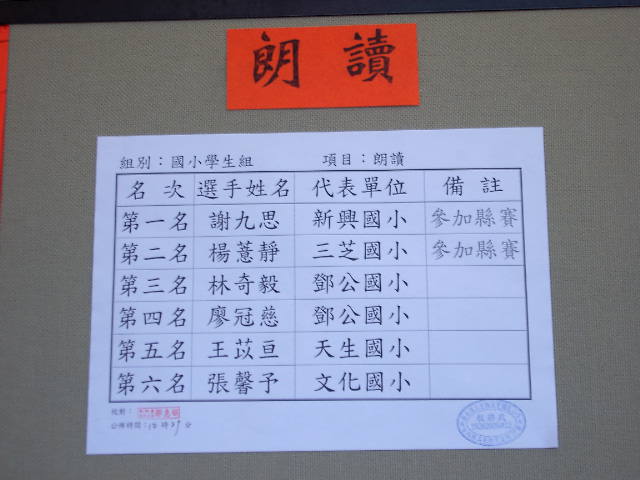 朗讀
組別：國小學生組 項目：朗讀
名次 選手姓名 代表單位 備註
第一名 謝九思 新興國小 參加縣賽
第二名 楊薏靜 三芝國小 參加縣賽
第三名 林奇毅 鄧公國小
第四名 廖冠慈 鄧公國小
第五名 王苡亘 天生國小
第六名 張馨予 文化國小
校對：
公佈時間： 時 分